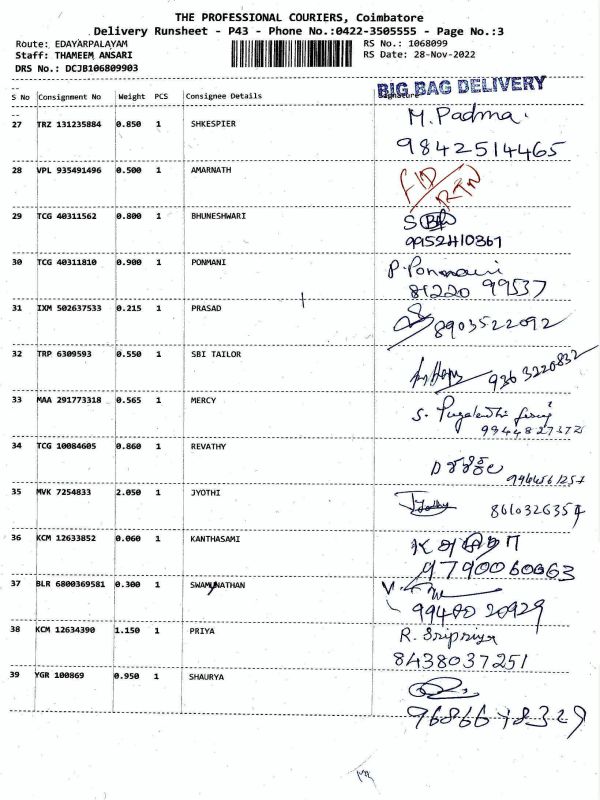 THE PROFESSIONAL COURIERS, Coimbatore
Delivery Runsheet - P43 - Phone No.:0422-3505555 - Page No.:3
Route: EDAYARPALAYAM RS No.: 1068099
Staff: THAMEEM ANSARI RS Date: 28-Nov-2022
DRS No.: DCJB106809903
BIG BAG DELIVERY
S No Consignment No Weight PCS Consignee Details Signature
27 TRZ 131235884 0.850 1 SHKESPIER M. Padma.
9842514465
28 VPL 935491496 0.500 1 AMARNATH
RTN
29 TCG 40311562 0.800 1 BHUNESHWARI S
9952410361
30 TCG 40311810 0.900 1 PONMANI P. Ponmani
81220 99537
31 IXM 502637533 0.215 1 PRASAD
8903522092
32 TRP 6309593 0.550 1 SBI TAILOR
9363220832
33 MAA 291773318 0.565 1 MERCY S.
34 TCG 10084605 0.860 1 REVATHY
35 MVK 7254833 2.050 1 JYOTHI
8610326354
36 KCM 12633852 0.060 1 KANTHASAMI
9790060063
37 BLR 6800369581 0.300 1 SWAMYNATHAN
99480 20929
38 KCM 12634390 1.150 1 PRIYA R. Sripriya
8438037251
39 YGR 100869 0.950 1 SHAURYA
9686618329